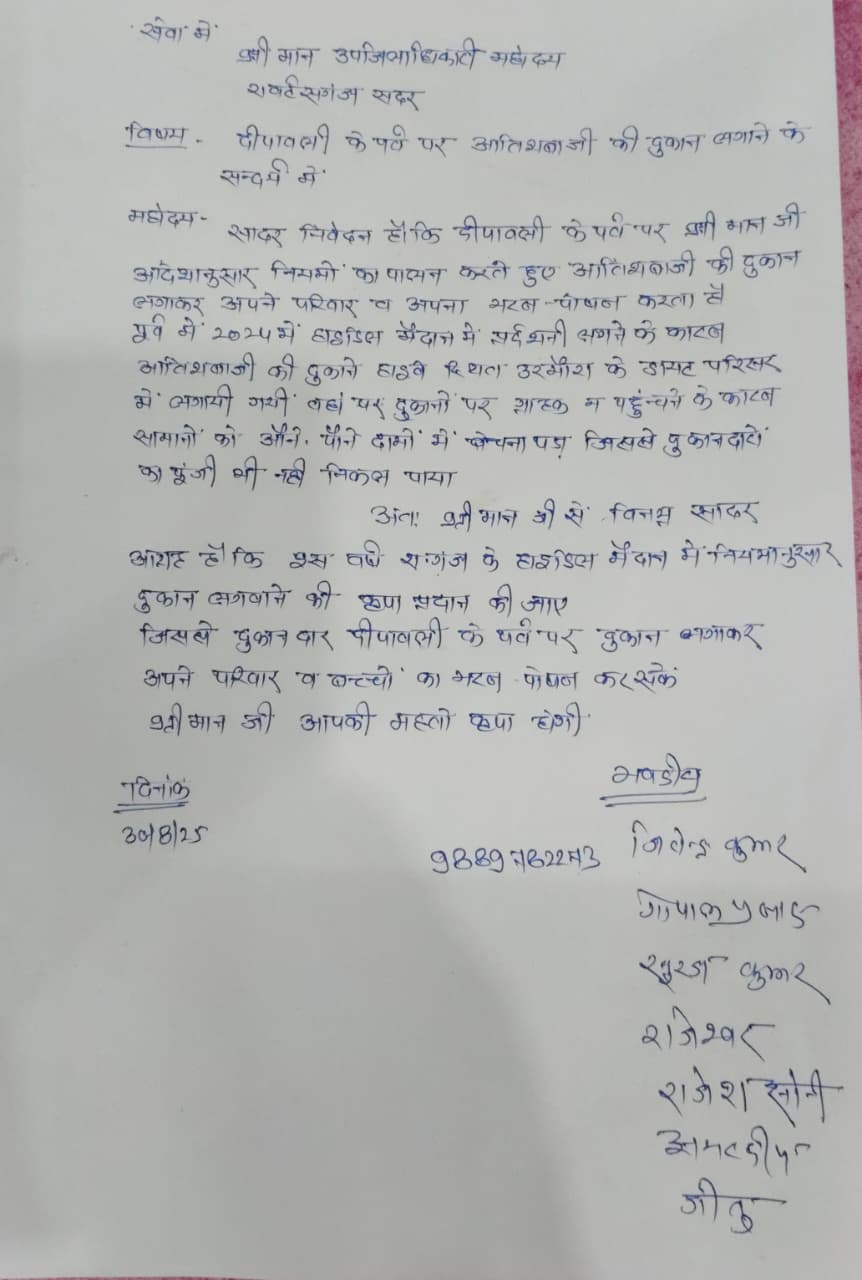 सेवा में
श्री मान उपजिलाधिकारी महोदय
राबर्टसगंज सदर
विषय - दीपावली के पर्व पर आतिशबाजी की दुकान लगाने के
सन्दर्भ में
महोदय - सादर निवेदन है कि दीपावली के पर्व पर श्री मान जी
आदेशानुसार नियमों का पालन करते हुए आतिशबाजी की दुकान
लगाकर अपने परिवार व अपना भरण-पोषण करता है
पूर्व में 2024 में हाइडिल मैदान में प्रर्दशनी लगने के कारण
आतिशबाजी की दुकाने हाइवे स्थित उरमौरा के डायट परिसर
में लगायी गयी वहां पर दुकानों पर ग्राहक न पहुंचने के कारण
सामानों को औने-पौने दामों में बेचना पड़ा जिससे दुकानदारों
का पूंजी भी नही निकल पाया
अतः श्री मान जी से विनम्र सादर
आग्रह है कि इस वर्ष रा०गंज के हाइडिल मैदान में नियमानुसार
दुकान लगवाने की कृपा प्रदान की जाए
जिससे दुकानदार दीपावली के पर्व पर दुकान लगाकर
अपने परिवार व बच्चों का भरण पोषण कर सकें
श्री मान जी आपकी महती कृपा होगी
दिनांक
30/8/25
भवदीय
9889782273 जितेन्द्र कुमार
गोपाल प्रसाद
सूरज कुमार
राजेश्वर
राजेश सोनी
अमरदीप
जीतू